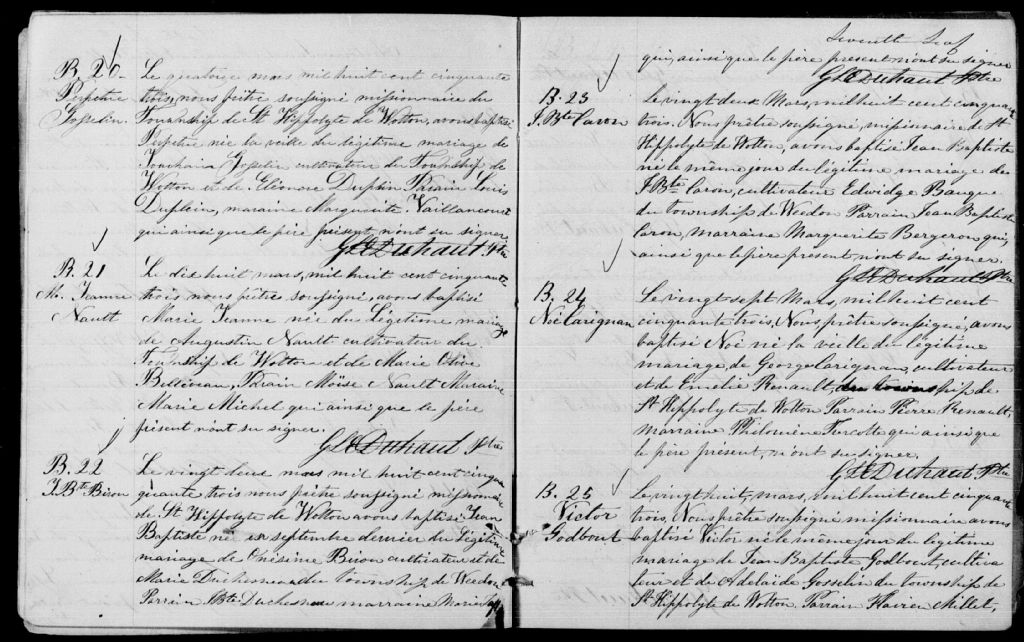 B. 20.
Perpétue
Josselin.
Le quatorze mars mil huit cent cinquante
trois, nous prêtre soussigné missionnaire du
Township de St Hippolyte de Wotton, avons baptisé
Perpétue née la veille du légitime mariage de
Josselin cultivateur du Township de
Wotton et de Eléonore Duplin Parain Louis
Duplein, maraine Marguerite Vaillancour
qui ainsi que le père présent n'ont su signer.
Duhaut Ptre
B. 21
M. Jeanne
Nault
Le dix huit mars, mil huit cent cinquante
trois nous prêtre soussigné, avons baptisé
Marie Jeanne née du Légitime mariage
de Augustin Nault cultivateur du
Township de Wotton et de Marie Olive
Belliveau, Parain Moïse Nault Maraine
Marie Michel qui ainsi que le père
présent n'ont su signer.
Duhaut Ptre
B. 22
J. Bte Bison
Le vingt deux mars mil huit cent cinqu
quante trois nous prêtre soussigné missionnaire
de St Hippolyte de Wotton avons baptisé Jean
Baptiste né en septembre dernier du Légitime
mariage de Onésime Bison cultivateur et de
Marie Duchesneau du township de Weedon
Parrain Bte Duchesneau marraine Marie
Seventh Leaf
qui, ainsi que le père présent n'ont su signer
Duhaut Ptre
B. 23
J. Bte Caron
Le vingt deux Mars, mil huit cent cinquante
trois. Nous prêtre soussigné, missionaire de St
Hippolyte de Wotton, avons baptisé Jean Baptiste
né le même jour du légitime mariage des
J. Bte Caron, cultivateur Edwidge Baugue
du township de Weedon Parrain Jean Baptiste
Caron, marraine Marguerite Bergeron qui,
ainsi que le père présent n'ont su signer.
Duhaut Ptre
B. 24
Noé Carignan
Le vingt sept Mars, mil huit cent
cinquante trois, Nous prêtre soussigné, avons
baptisé Noé né la veille du légitime
mariage, de George Carignan, cultivateur
et de Emélie Renault, du township de
St Hippolyte de Wotton Parrain Pierre Renault
marraine Philomène Turcotte qui ainsi que
le père présent, n'ont su signer.
Duhaut Ptre
B. 25
Victor
Godbout
Le vingt huit, mars, mil huit cent cinquante
trois, Nous prêtre soussigné missionnaire avons
baptisé Victor né le même jour du légitime
mariage de Jean Baptiste Godbout, cultiva
teur et de Adelaïde Gosselin du township de
St Hippolyte de Wotton, Parrain Flavien Millet,